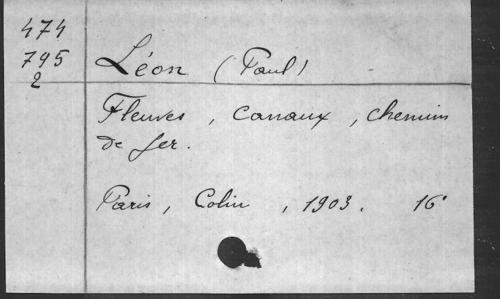 474
795
2
Léon (Paul)
Fleuves, canaux, chemins
de fer.
Paris, Colin, 1903. 16°